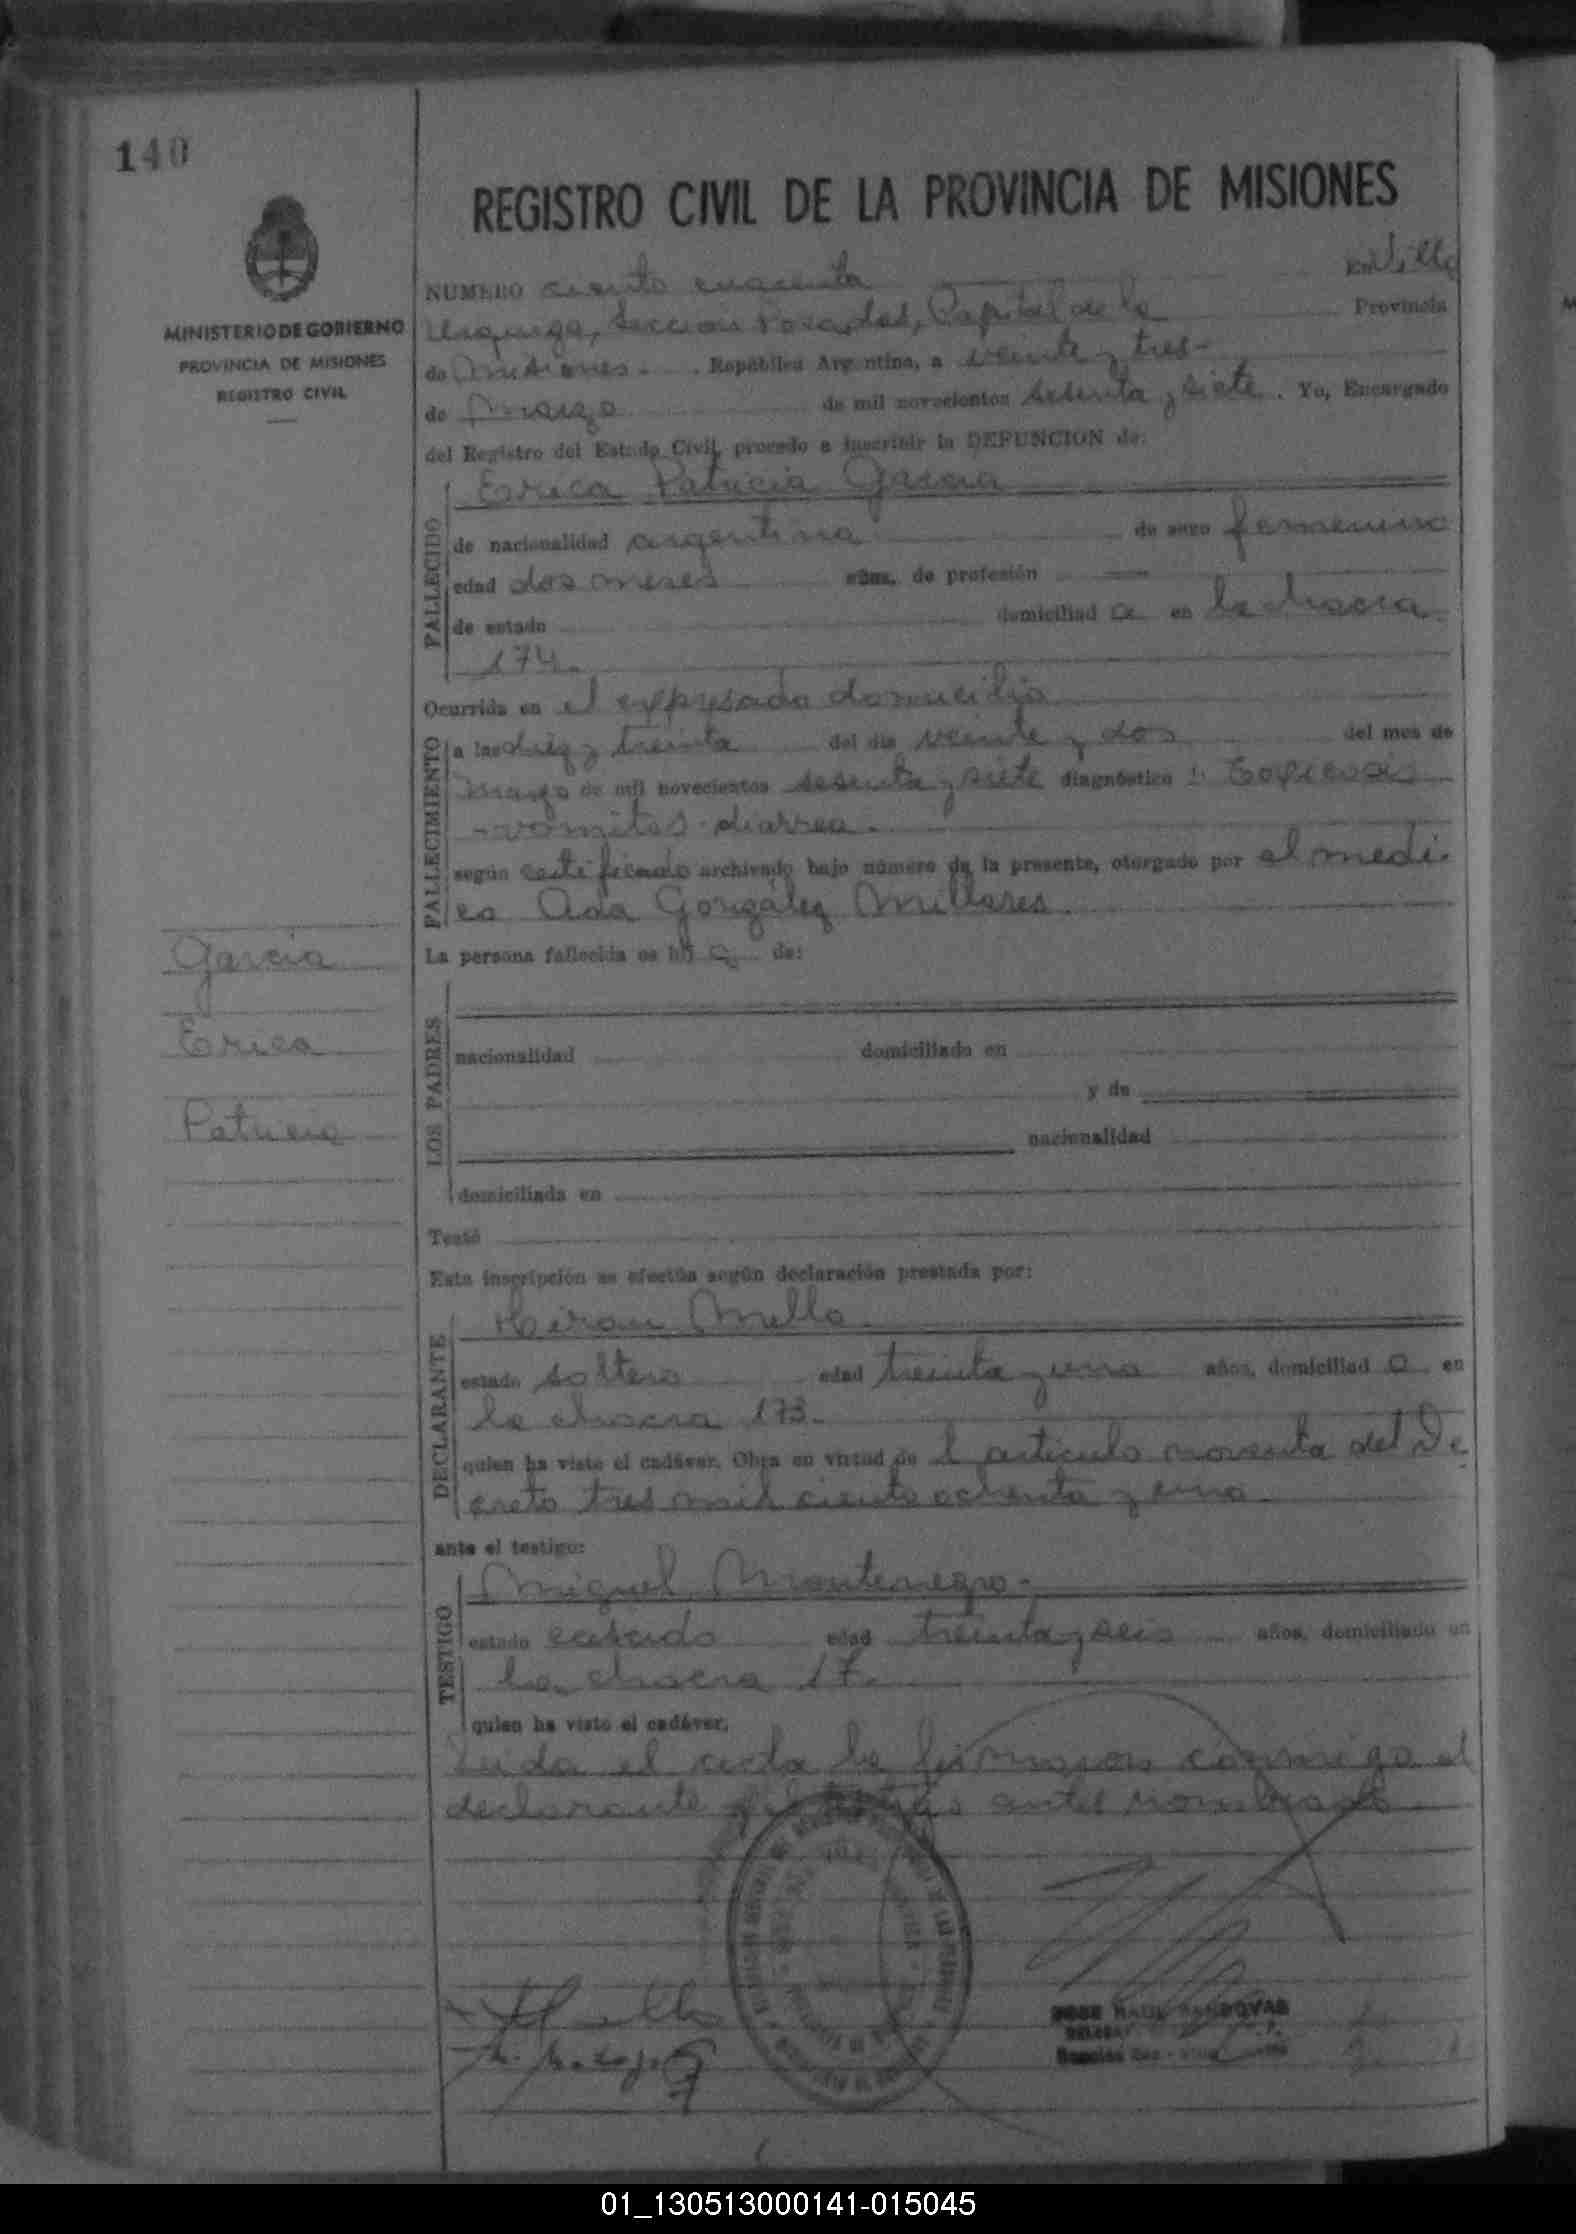 140
MINISTERIO DE GOBIERNO
PROVINCIA DE MISIONES
REGISTRO CIVIL
REGISTRO CIVIL DE LA PROVINCIA DE MISIONES
NUMERO ciento cuarenta En Villa
Urquiza, Sección Posadas, Capital de la Provincia
de Misiones. República Argentina, a veinte y tres-
de Marzo de mil novecientos sesenta y siete. Yo, Encargado
del Registro del Estado Civil, procedo a inscribir la DEFUNCION de:
FALLECIDO
Erica Patricia Garcia
de nacionalidad argentina de sexo femenino
edad dos meses años, de profesión
de estado domiciliad a en la chacra
174.
Ocurrida en el expresado domicilio
FALLECIMIENTO
a las diez y treinta del día veinte y dos del mes de
Marzo de mil novecientos sesenta y siete diagnóstico: Toxicosis
-vomitos-diarrea.
según certificado archivado bajo número de la presente, otorgado por el medi-
co Ada González Millares.
La persona fallecida es hij a de:
García
Erica
Patricia
LOS PADRES
nacionalidad domiciliado en
y de
nacionalidad
domiciliada en
Testó
Esta inscripción se efectúa según declaración prestada por:
DECLARANTE
Hiran Mello.
estado soltero edad treinta y uno años, domiciliad o en
la chacra 173.
quien ha visto el cadáver. Obra en virtud de l artículo noventa del De
creto tres mil ciento ochenta y uno.
ante el testigo:
TESTIGO
Miguel Montenegro-
estado casado edad treinta y seis años, domiciliado en
la chacra 17.
quien ha visto el cadáver.
Leida el acta la firmaron conmigo el
declarante y el testigo antes nombrado
JOSE RAUL SANDOVAL
01_130513000141-015045